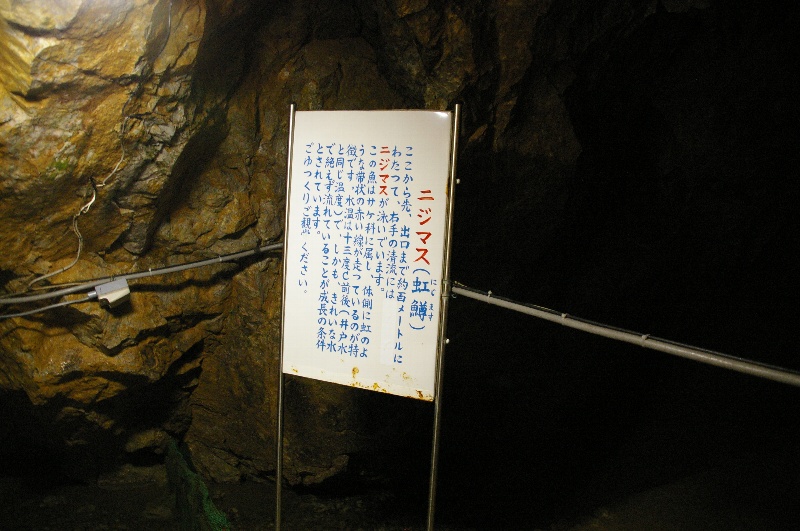 ニジマス(虹鱒)
にじ ます
ここから先、出口まで約百メートルに
わたって、右手の清流には
ニジマスが泳いでいます。
この魚はサケ科に属し、体側に虹のよ
うな帯状の赤い線が走っているのが特
徴です。水温は十三度C前後(井戸水
と同じ温度)で、しかも、きれいな水
で絶えず流れていることが成長の条件
とされています。
ごゆっくりご観覧ください。